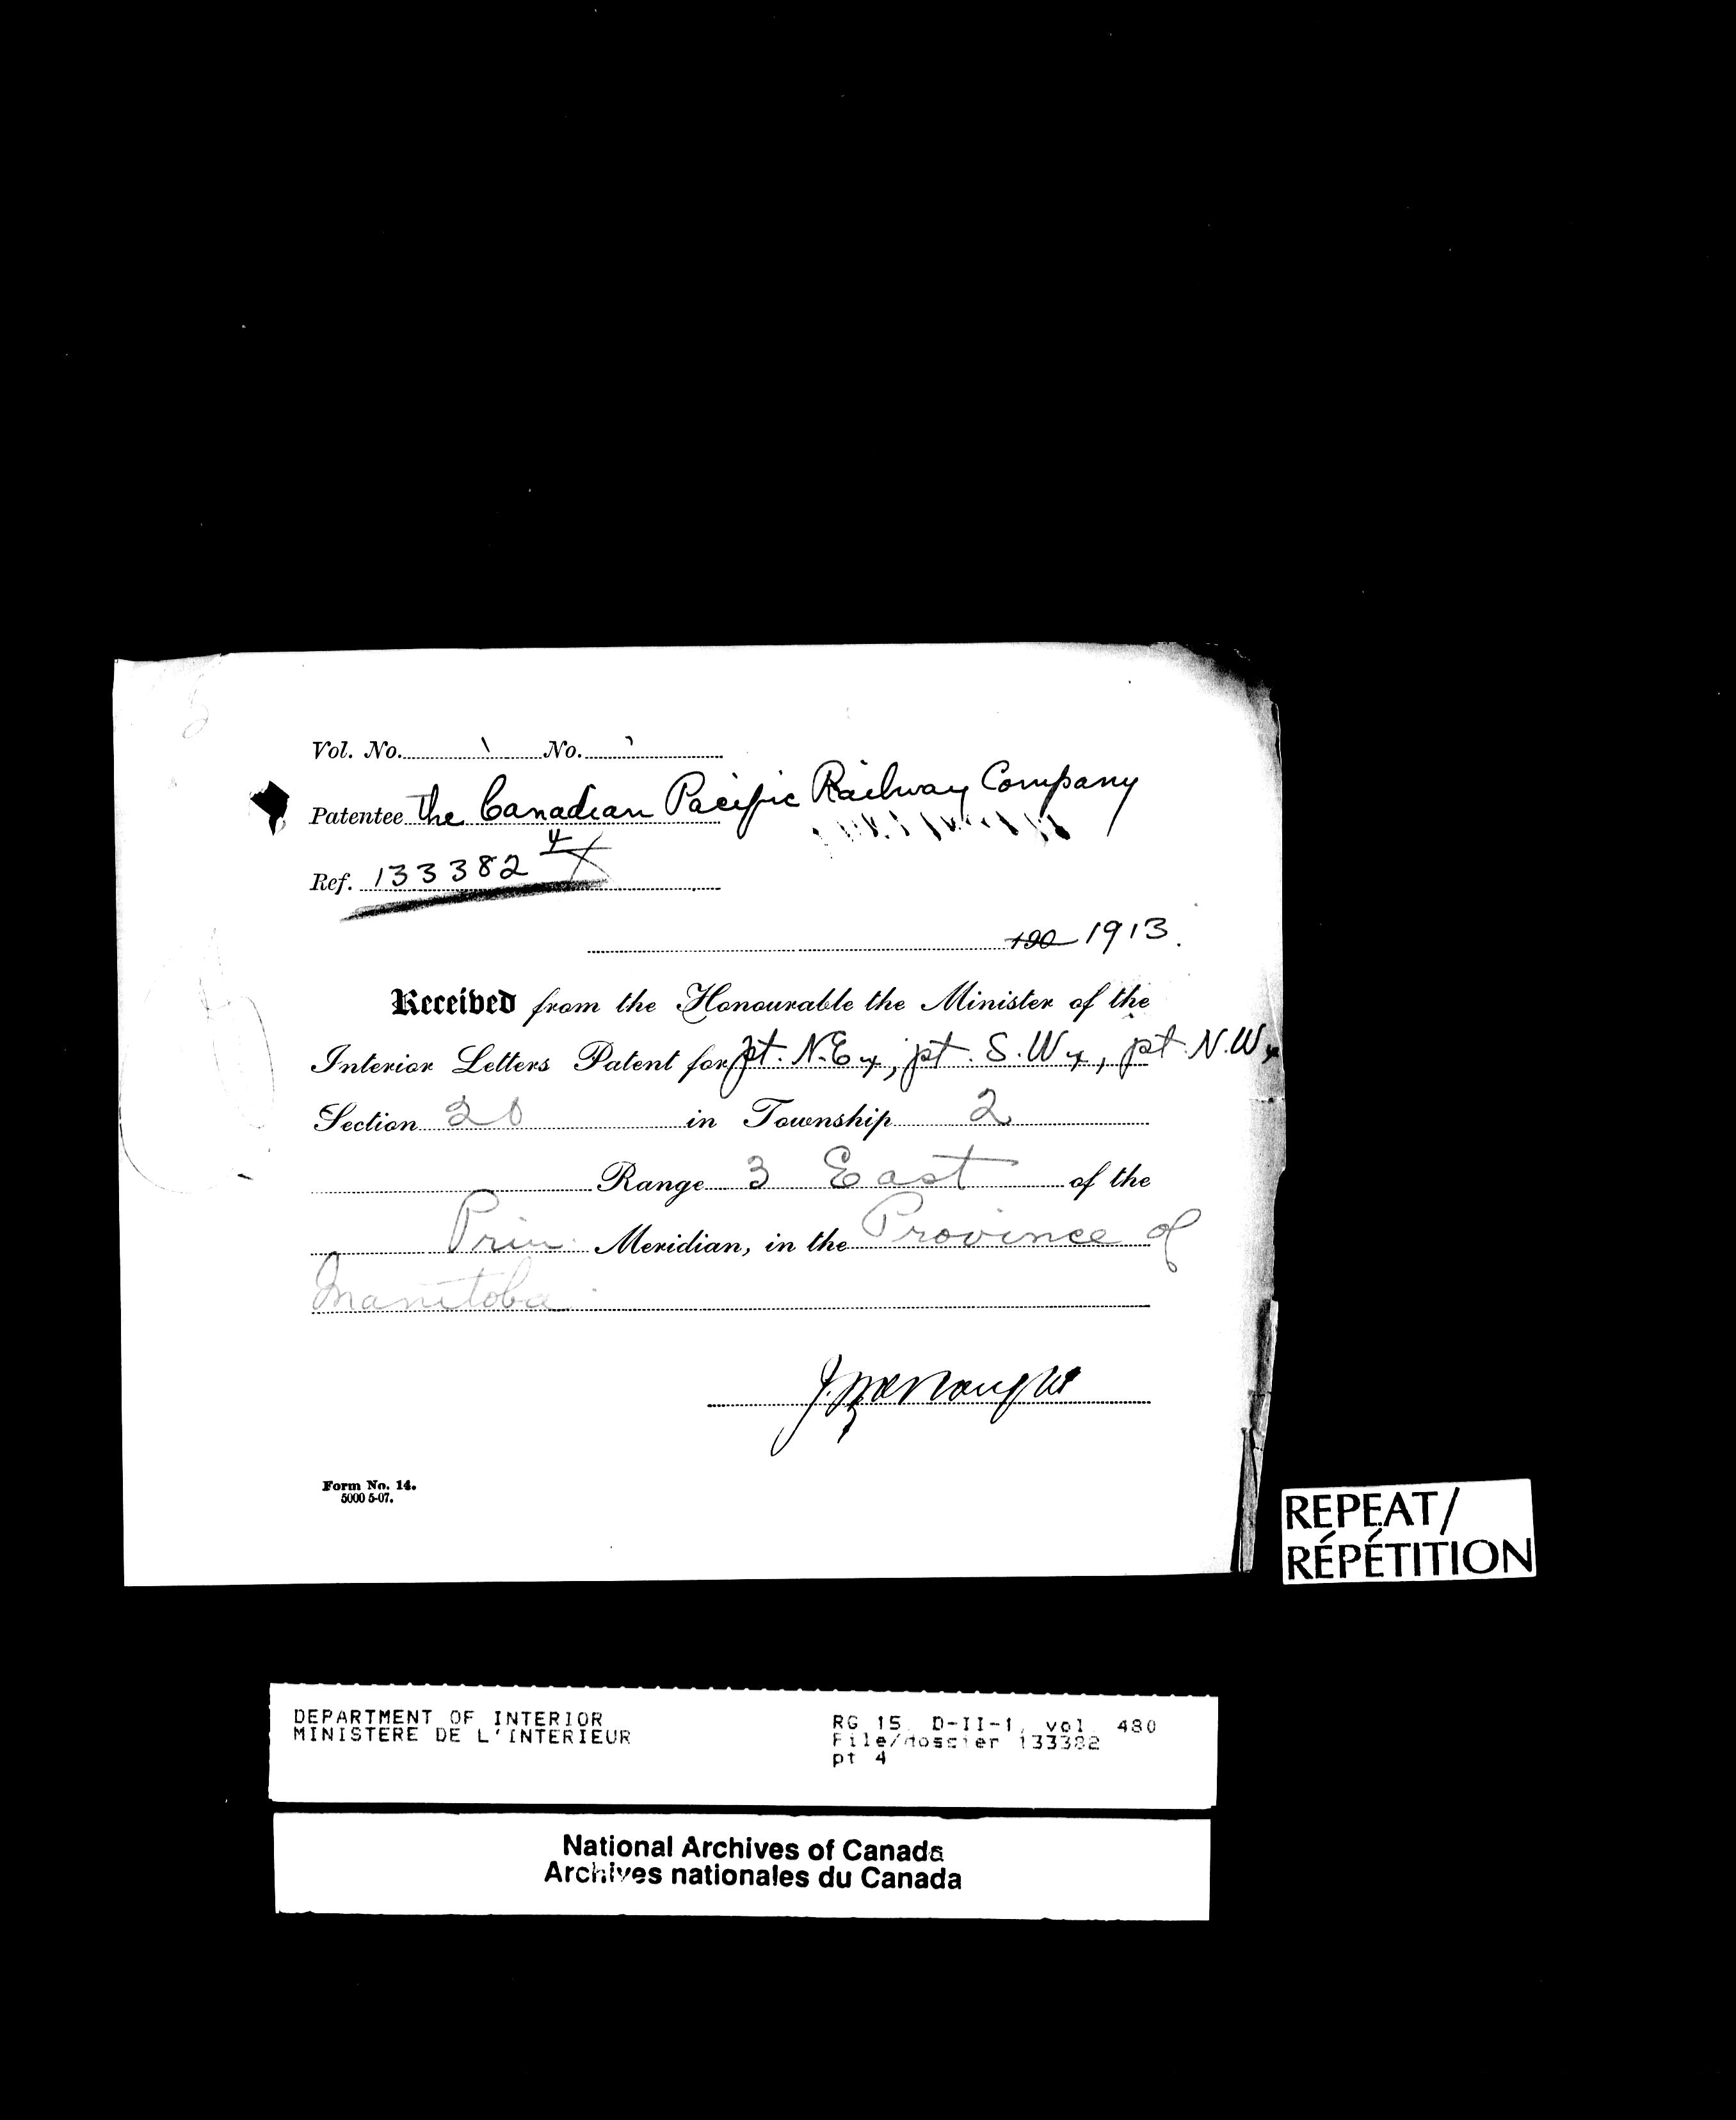 Vol. No. No.
Patentee the Canadian Pacific Railway Company
Ref. 133382 4
190 1913.
Received from the Honourable the Minister of the
Interior Letters Patent for pt. N.E ¼, pt. S.W ¼, pt. N.W ¼
Section 20 in Township 2
Range 3 East of the
Prin. Meridian, in the Province of
Manitoba.
Form No. 14.
5000 5-07.
REPEAT/
RÉPÉTITION
DEPARTMENT OF INTERIOR
MINISTERE DE L'INTERIEUR
RG 15, D-II-1, vol. 480
File/dossier 133382
pt 4
National Archives of Canada
Archives nationales du Canada